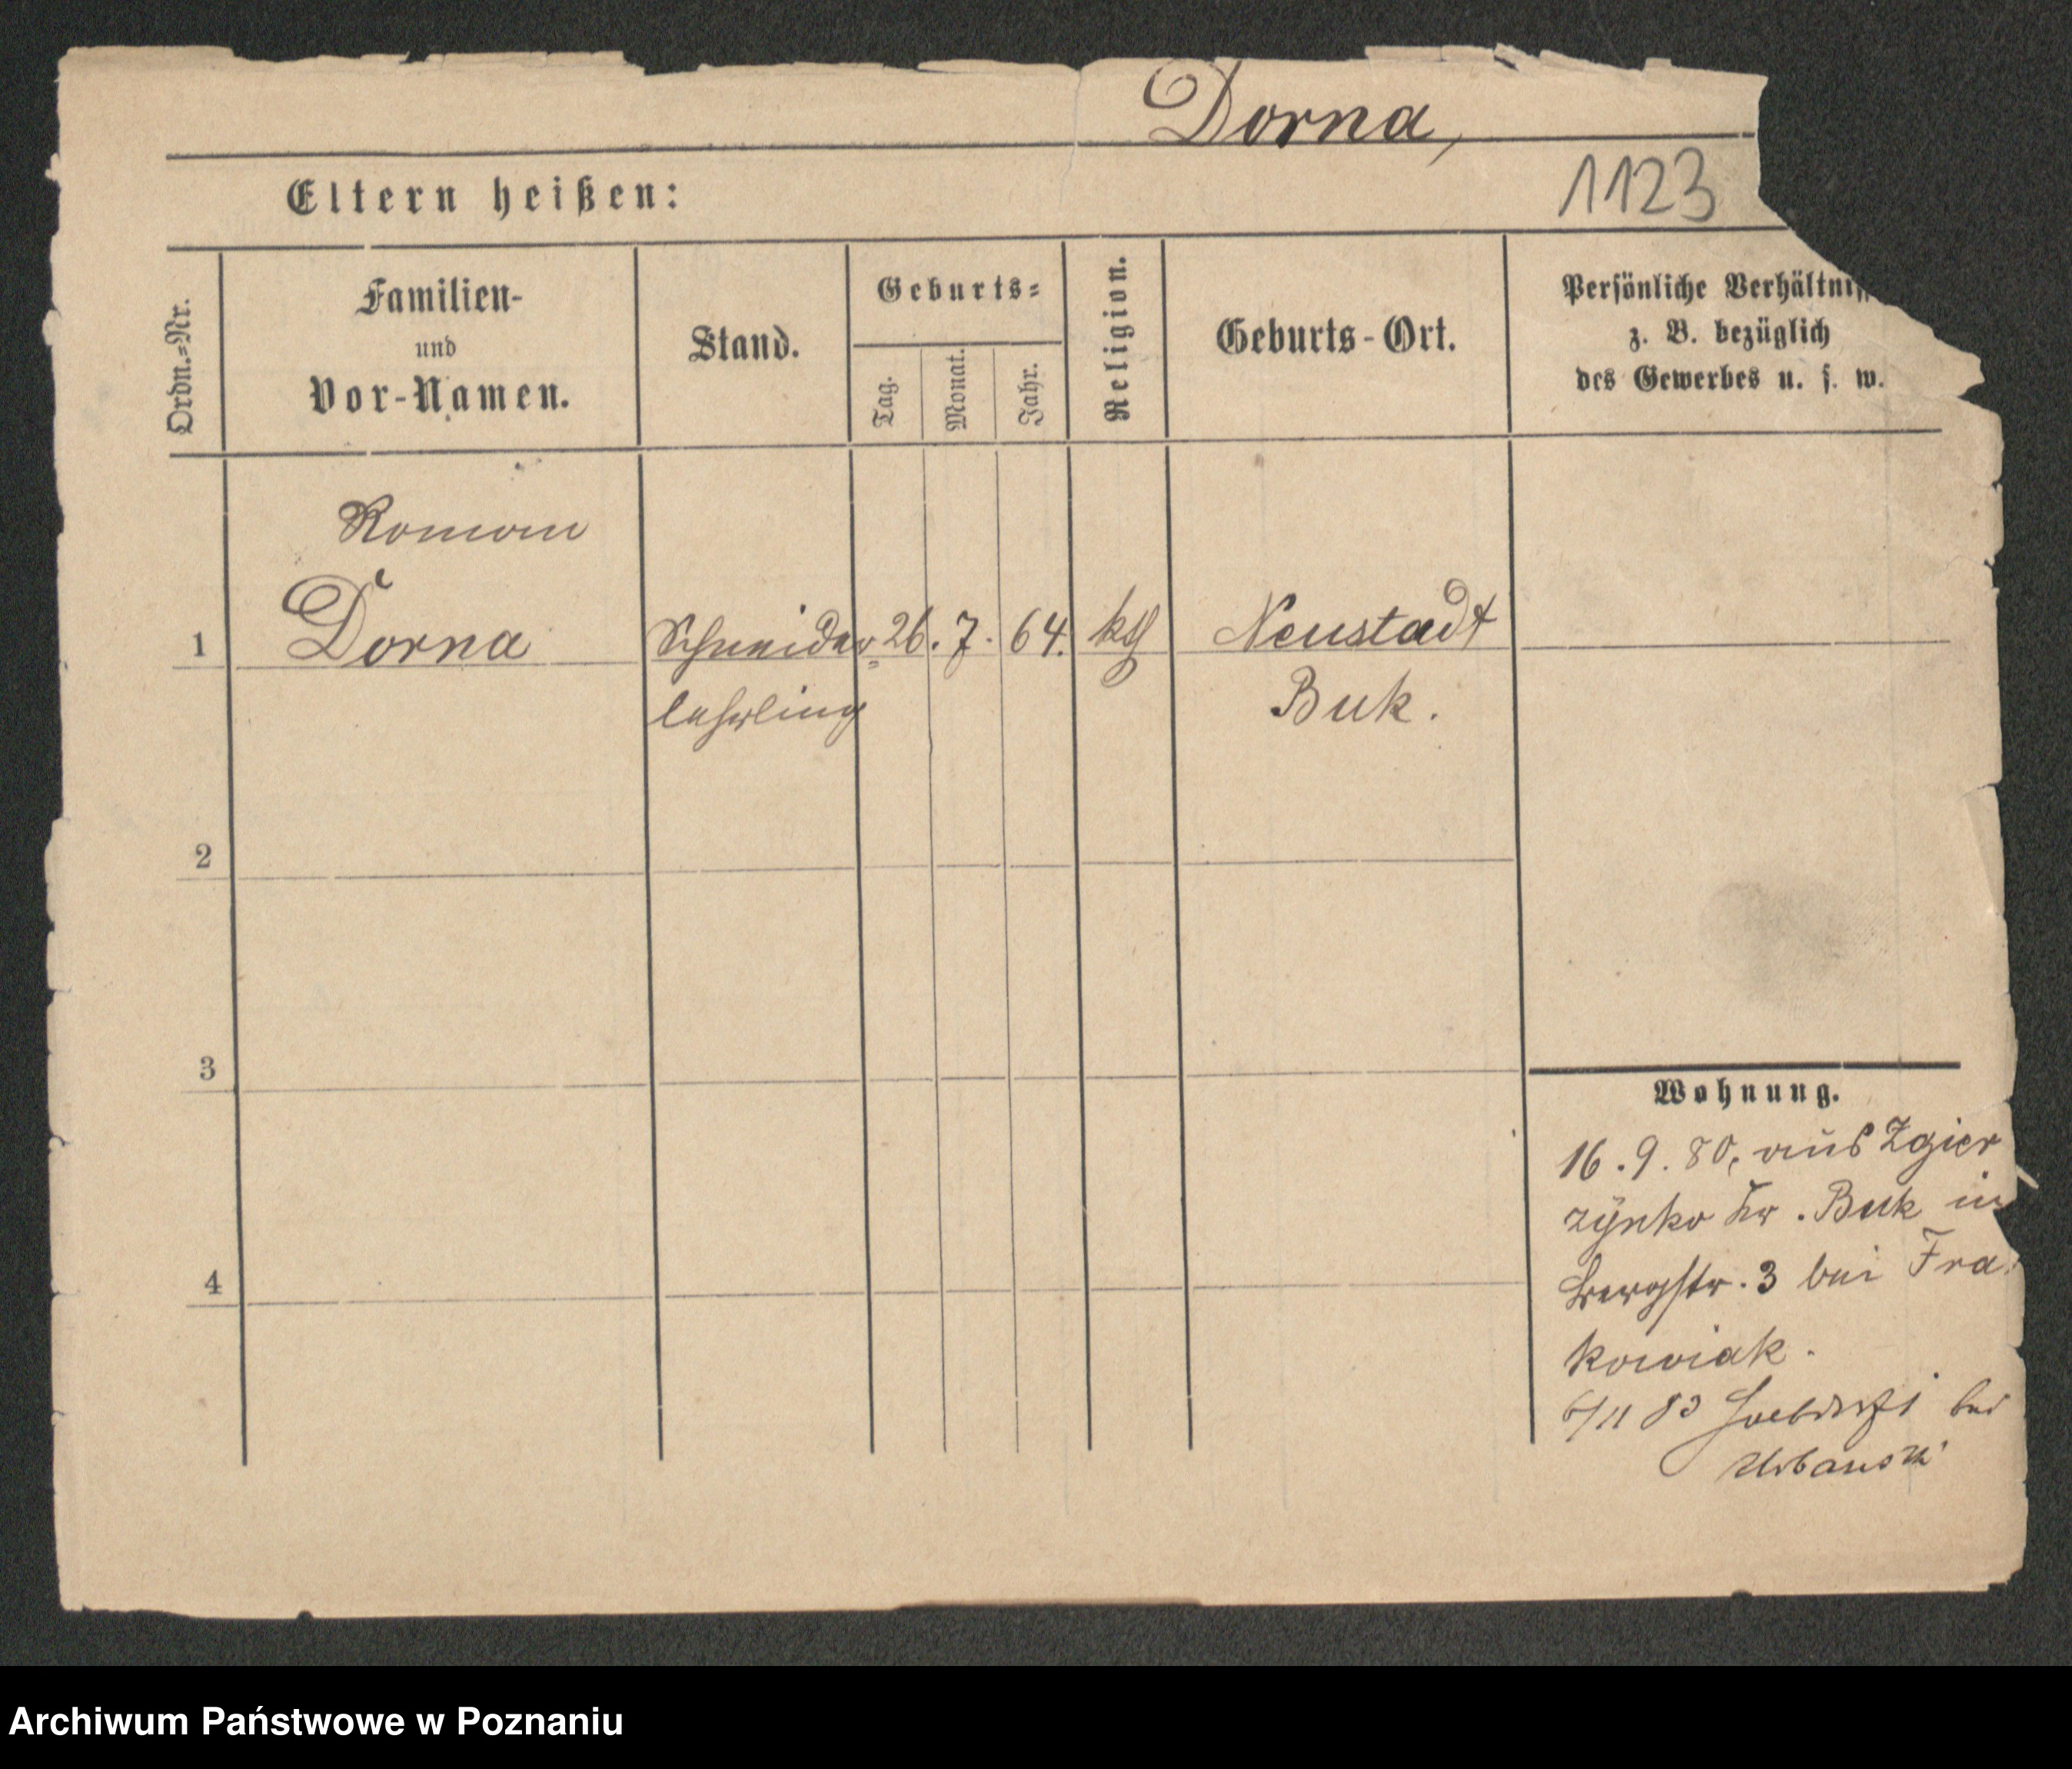 Dorna,
Eltern heißen:
1123
Ordn.=Nr.
Familien-
und
Vor-Namen.
Stand.
Geburts=
Tag.
Monat.
Jahr.
Religion.
Geburts-Ort.
Persönliche Verhältnis
z. B. bezüglich
des Gewerbes u. s. w.
Roman
1 Dorna Schneider= 26. 7. 64. kth Neustadt
lehrling Buk.
2
3
4
Wohnung.
16. 9. 80, aus Zgier
zynko Kr. Buk in
Bergstr. 3 bei Fra
kowiak.
6/11 83 bei
Urbanski